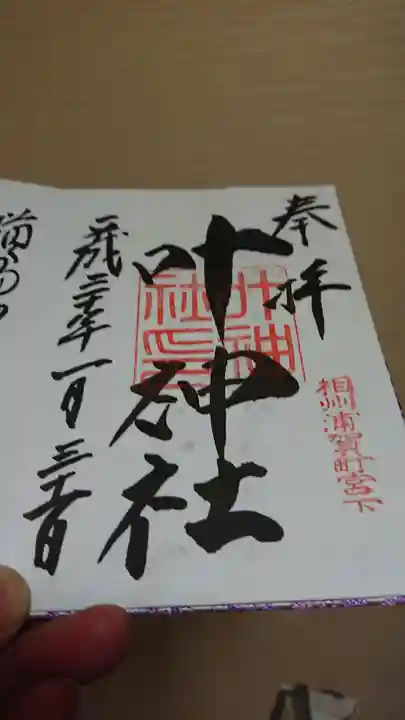 奉拝
相州浦賀町宮下
叶神社
叶神社之印
平成三十年一月三十日